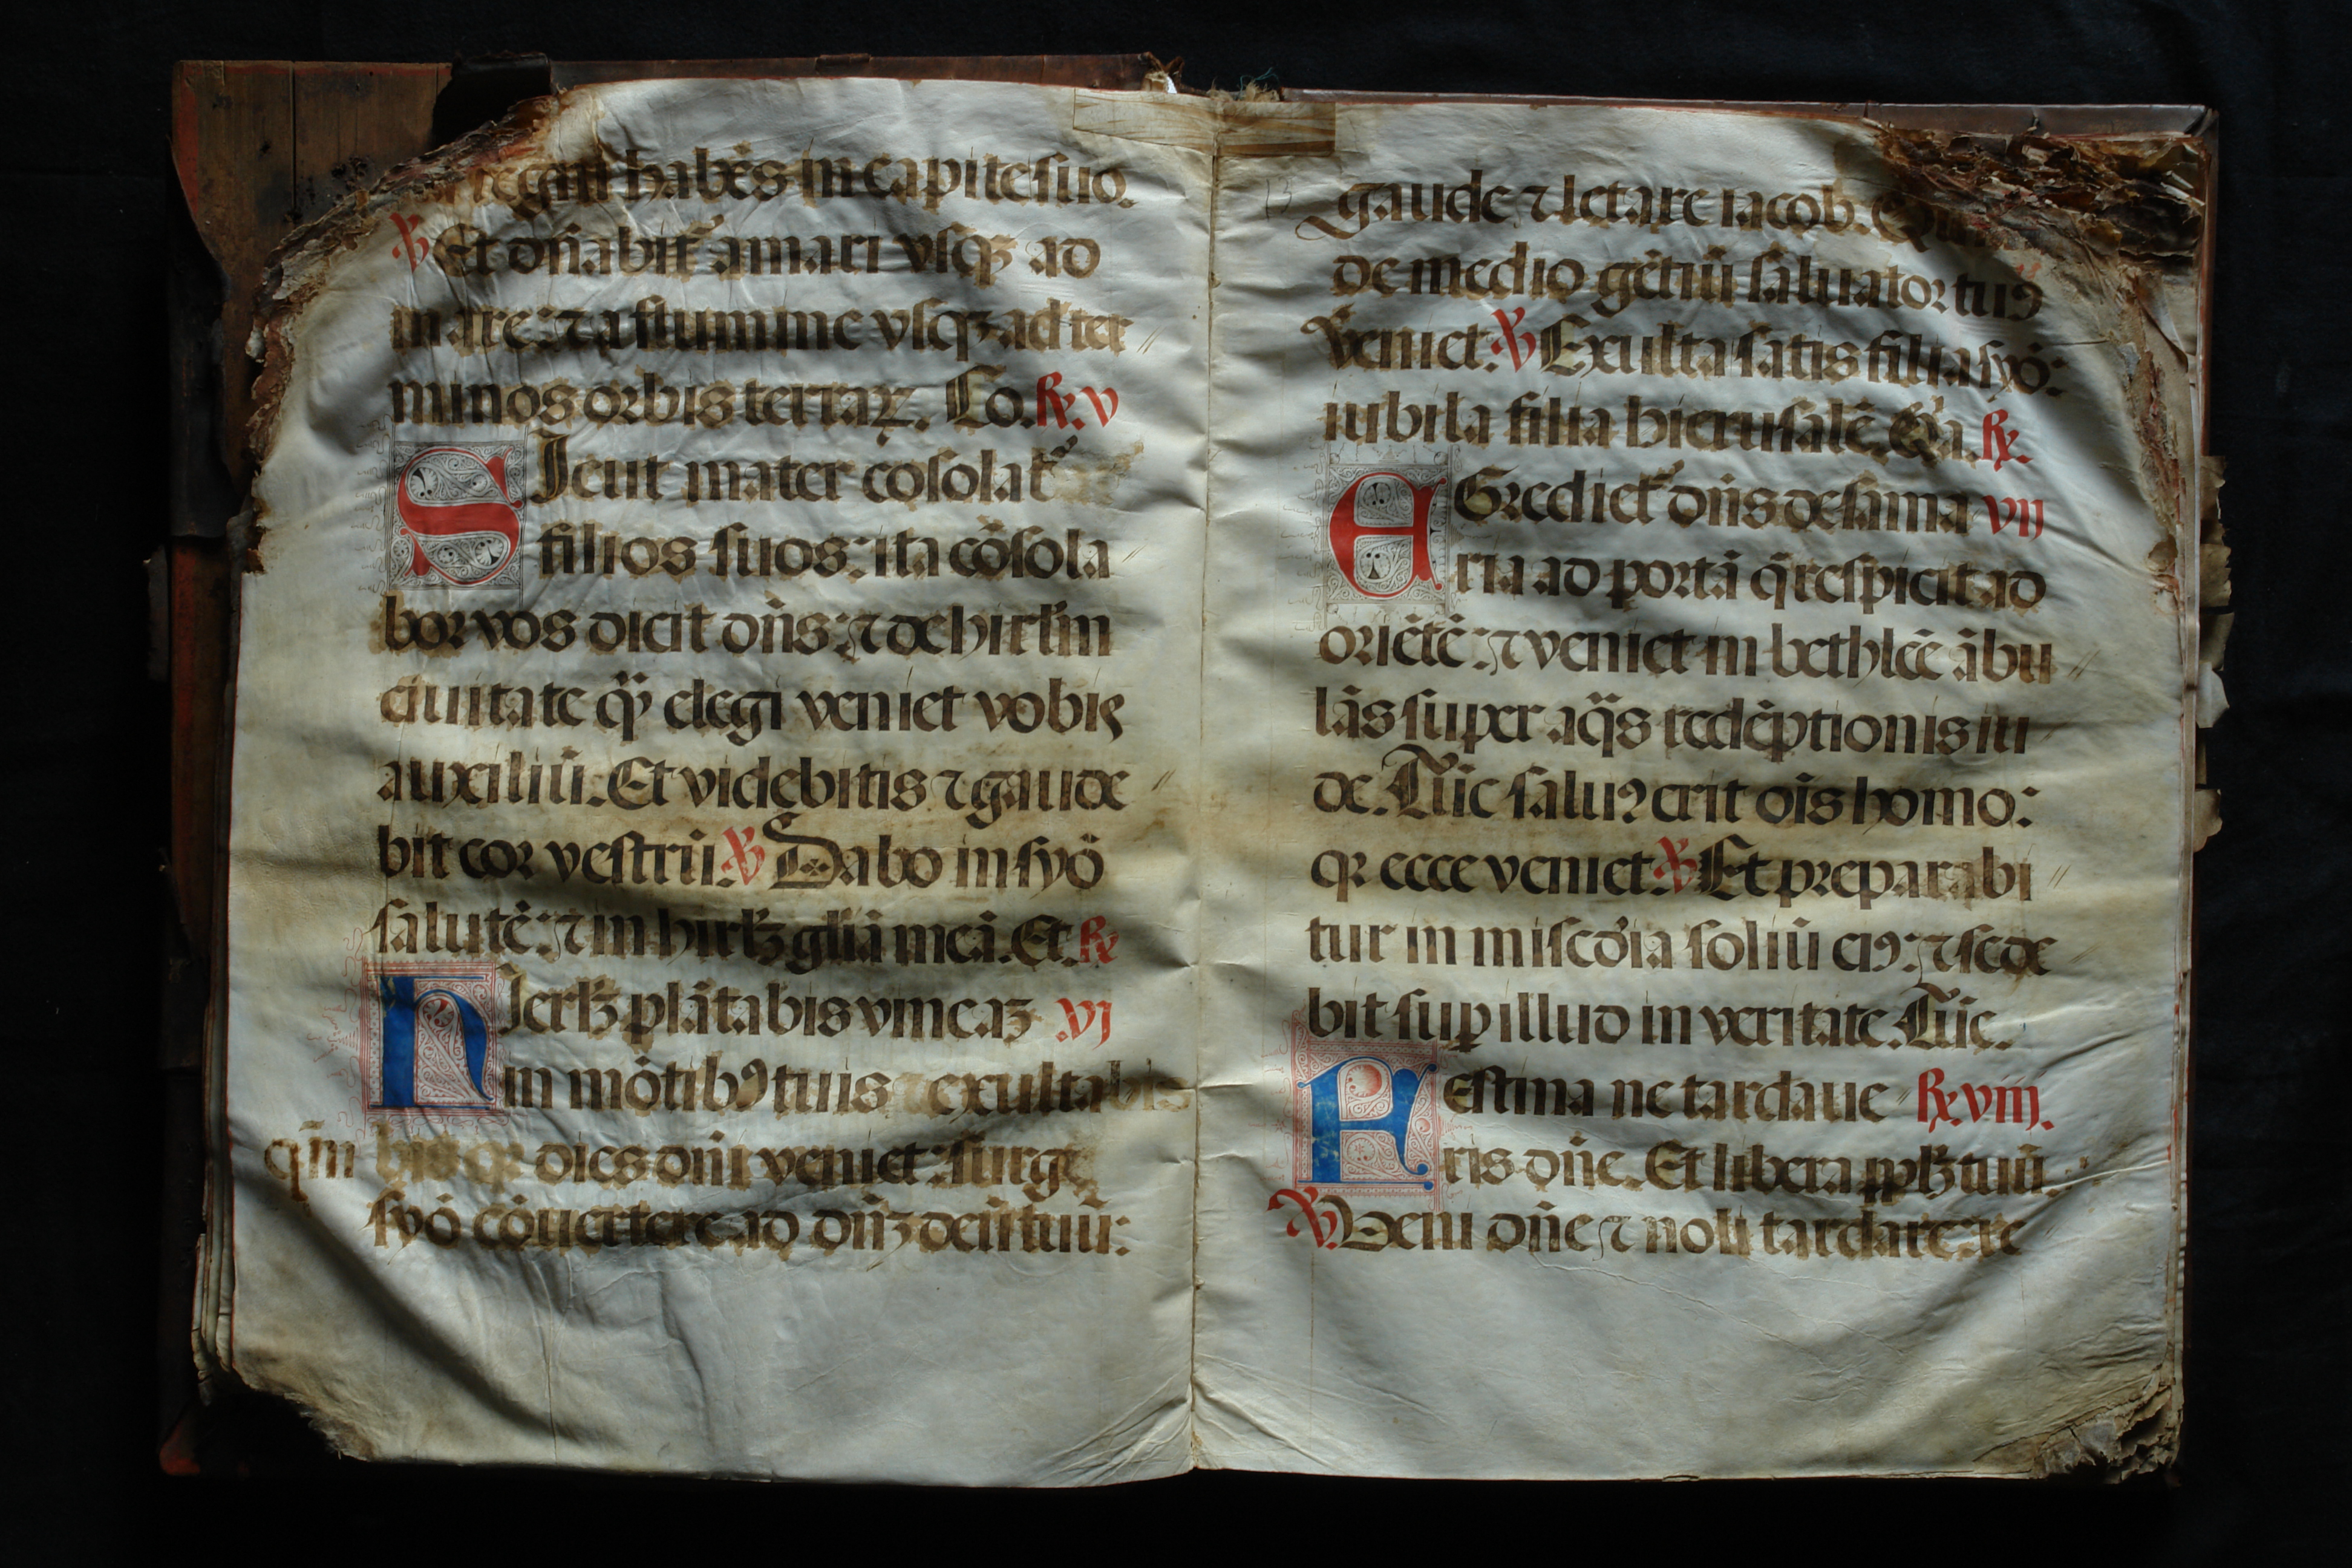 regnū habēs in capite suo.
℣ Et dn̄abit᷑ a mari vsqꝫ ad
mare: ⁊ a flumine vsqꝫ ad ter
minos orbis terraꝝ. Lo. ℟. v
SIcut mater cōsolat᷑
filios suos: ita cōsola
bor vos dicit dn̄s: ⁊ de hirl̄m
ciuitate q̄ elegi veniet vobis
auxiliū. Et videbitis ⁊ gaude
bit cor vestrū. ℣ Dabo in syō
salutē: ⁊ in hirlꝫ gl̄iā meā. Et. ℟
HIerlꝫ plātabis vineaꝫ vj
in mōtibꝰ tuis ⁊ exultabis
qm̄ qꝛ dies dn̄i veniet: surge
syō cōuertere ad dn̄ꝫ deū tuū:
gaude ⁊ letare iacob. Qui
de medio gētiū saluator tuꝰ
veniet. ℣ Exulta satis filia syō:
iubila filia hierusalē. Qi̇a. ℟.
EGrediet᷑ dn̄s de sama vij
ria ad portā q̄ respicit ad
oriētē: ⁊ veniet in bethleē ābu
lās super aq̄s redēptionis iu
de. Tūc saluꝰ erit oīs homo:
qꝛ ecce veniet. ℣ Et prepara bi
tur in miscd̓ia soliū eiꝰ: ⁊ sede
bit suꝑ illud in veritate. Tūc.
FEstina ne tardaue ℟. viij.
ris dn̄e. Et libera pplꝫ tuū.
℣. Veni dn̄e ⁊ noli tardare: re